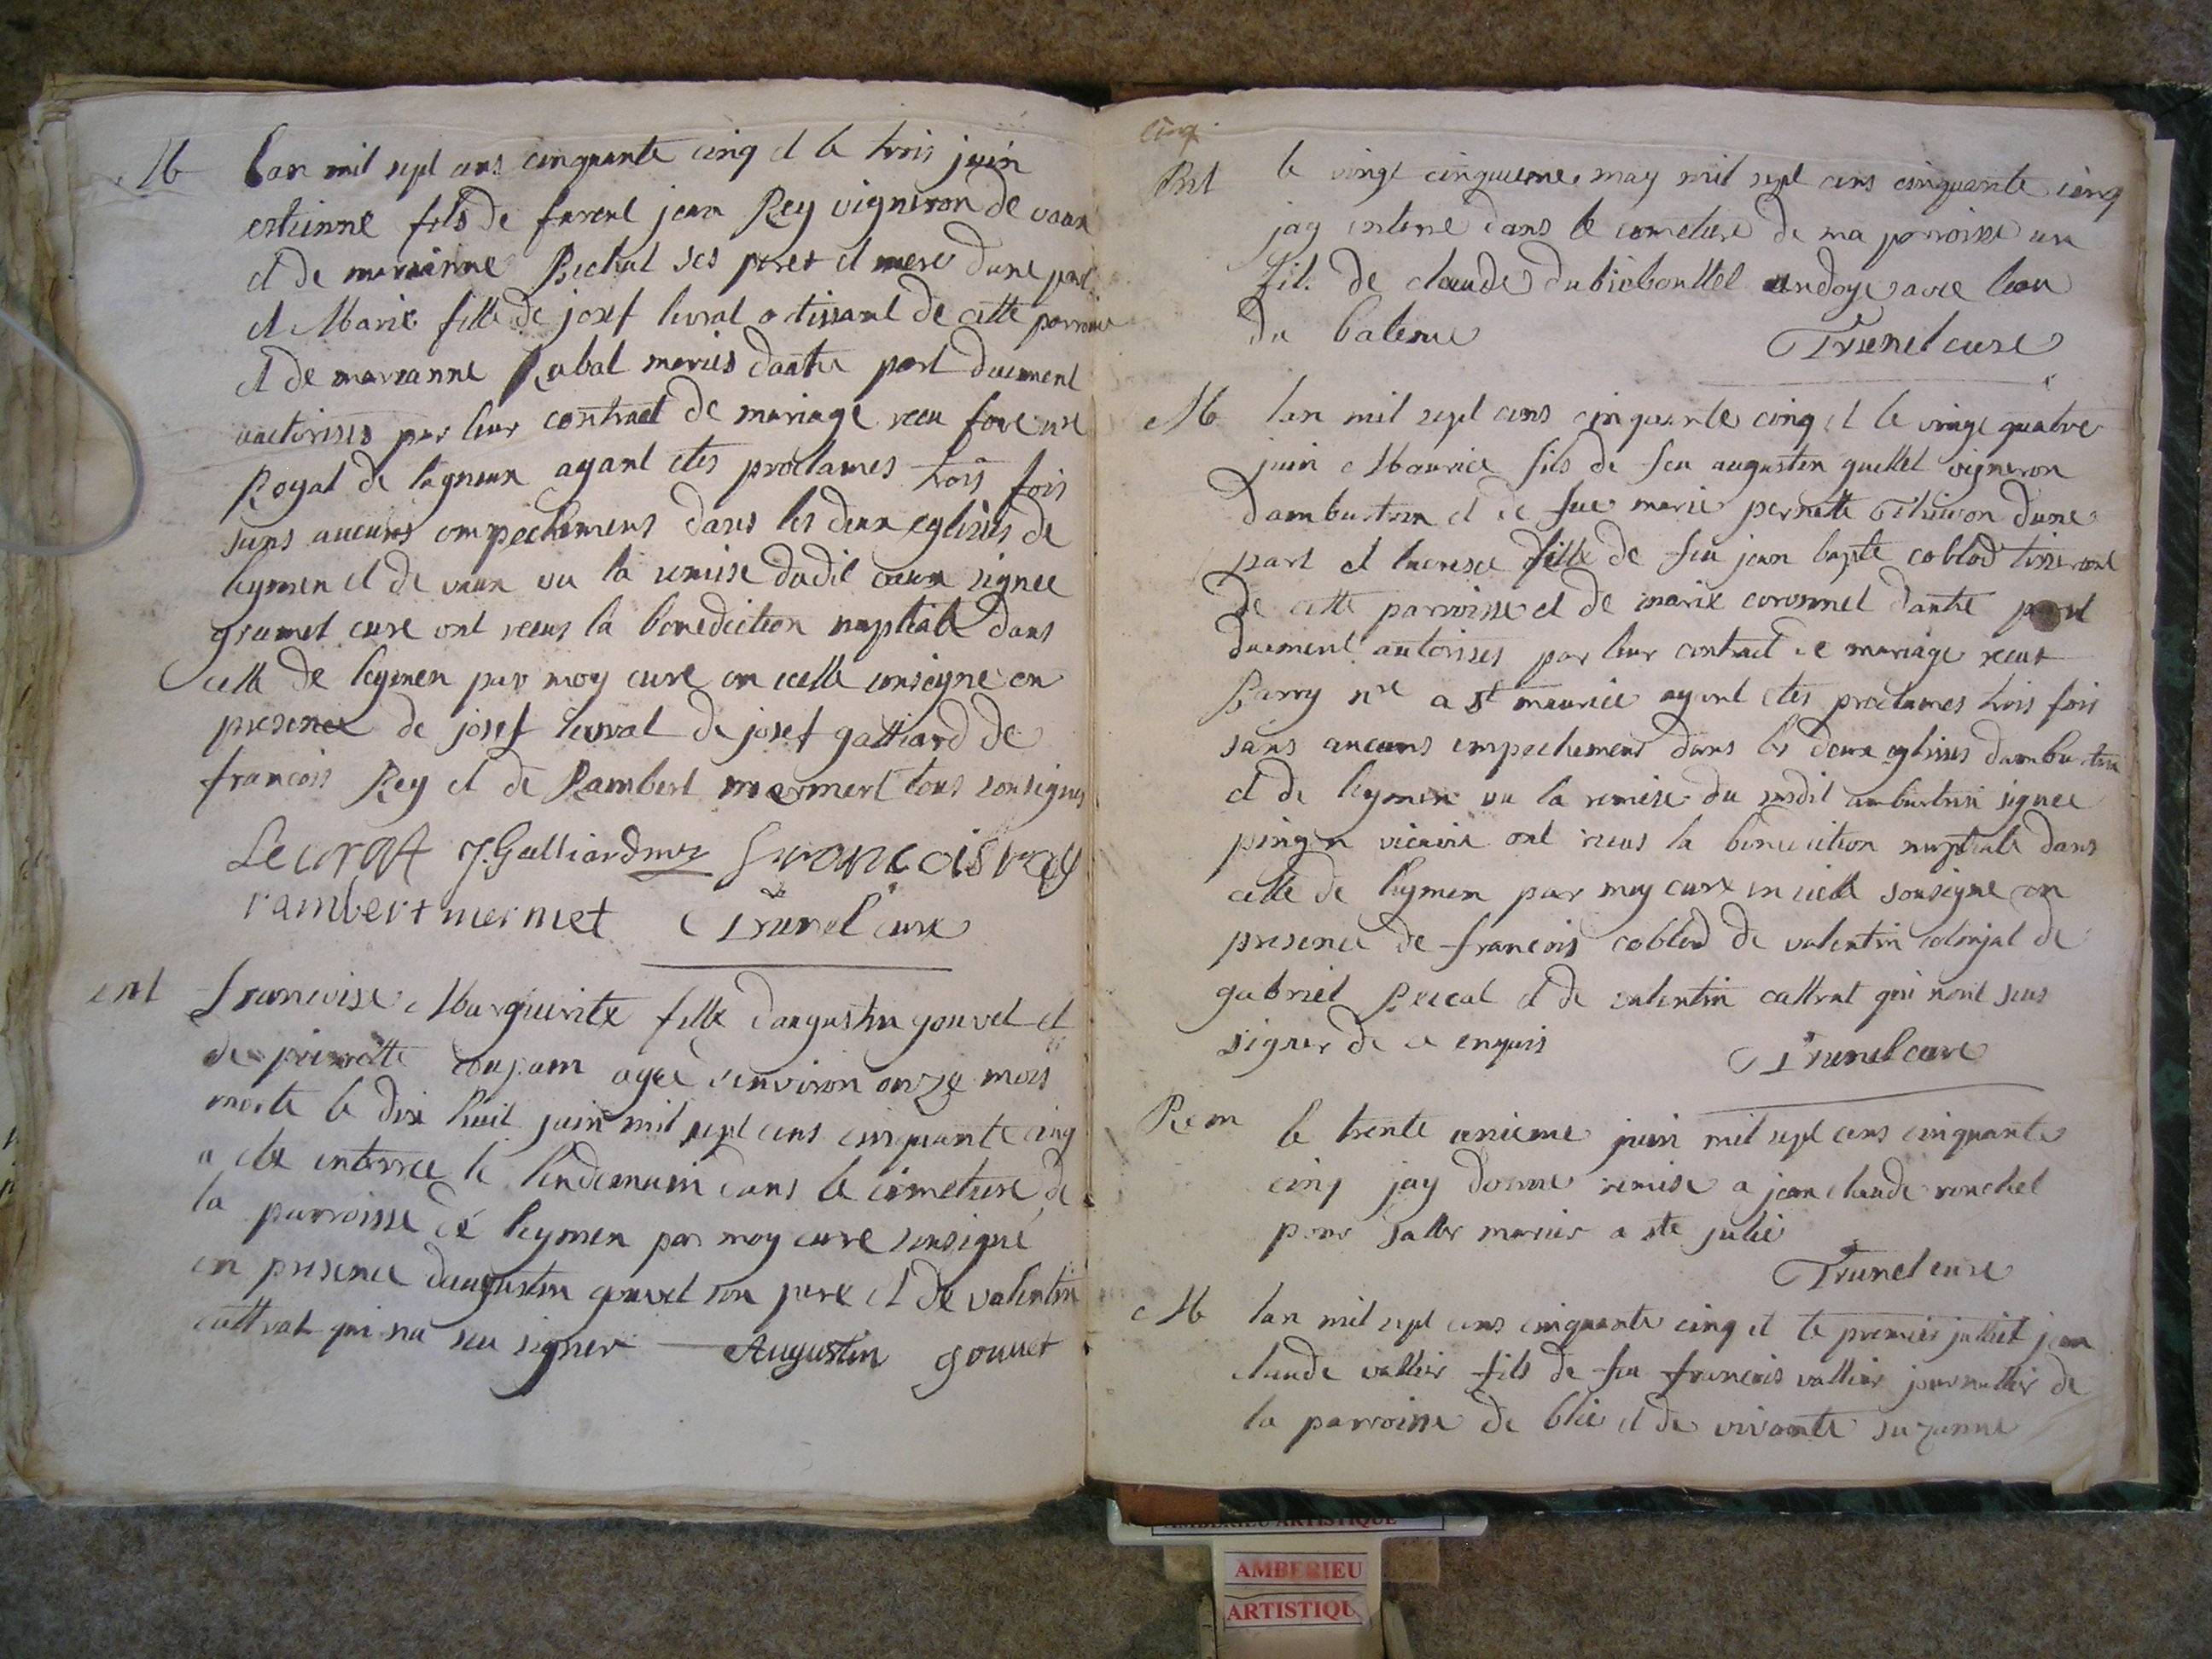 M lan mil sept cens cinquante cinq et le trois juin
estienne fils de jean Rey vigneron de vaux
et de marianne Bechat ses peres et mere dune part
et Marie fille de josef levrat tissant de cette parroisse
et de marianne Rabal maries dautre part duement
auctorises par leur contract de mariage receu nre
Royal de lagneux ayant etes proclames trois fois
sans aucuns empechemens dans les deux eglises de
leymen et de vaux vu la remise dudit vaux signee
grumet cure ont receus la benediction nuptiale dans
celle de leymen par moy cure en icelle sousigne en
presence de josef levrat de josef galliard de
francois Rey et de Rambert mermert tous sousignes
Levrat J. Galliard francois rey
rambert mermet Trunel cure
ent francoise Marguerite fille daugustin gouvet et
de agee denviron onze mois
morte le dix huit juin mil sept cens cinquante cinq
a ete enterree le lendemain dans le cimetiere de
la parroisse de leymen par moy cure sousigné
en presence daugustin gouvet son pere et de valentin
cattrat qui na seu signer Augustin gouvet
cinq
le vingt cinquieme may mil sept cens cinquante cinq
jay enterre dans le cimetiere de ma parroisse un
fil. de claude andoye avec leau
du bateme Trunel cure
M lan mil sept cens cinquante cinq et le vingt quatre
juin Maurice fils de feu augustin guellet vigneron
dambutrin et de fue marie pernette Thivon dune
part et fille de feu jean bapte coblod tisserant
de cette parroisse et de marie coronnel dautre part
duement autorises par leur contract de mariage receus
Barry nre a st maurice ayant etes proclames trois fois
sans aucuns empechemens dans les deux eglises dambutrin
et de leymen vu la remise du susdit ambutrin signee
vicaire ont receus la benediction nuptiale dans
celle de leymen par moy cure en icelle sousigne en
presence de francois coblod de valentin de
gabriel et de valentin cattrat qui nont seus
signer de ce enquis Trunel cure
Rem le trente unieme juin mil sept cens cinquante
cinq jay donne remise a jean claude ronchel
pour saller marier a ste julie
Trunel cure
M lan mil sept cens cinquante cinq et le premier julliet jean
claude vallier fils de feu francois vallier journallier de
la parroisse de blie et de vivante suzanne
AMBERIEU ARTISTIQUE
AMBERIEU
ARTISTIQU